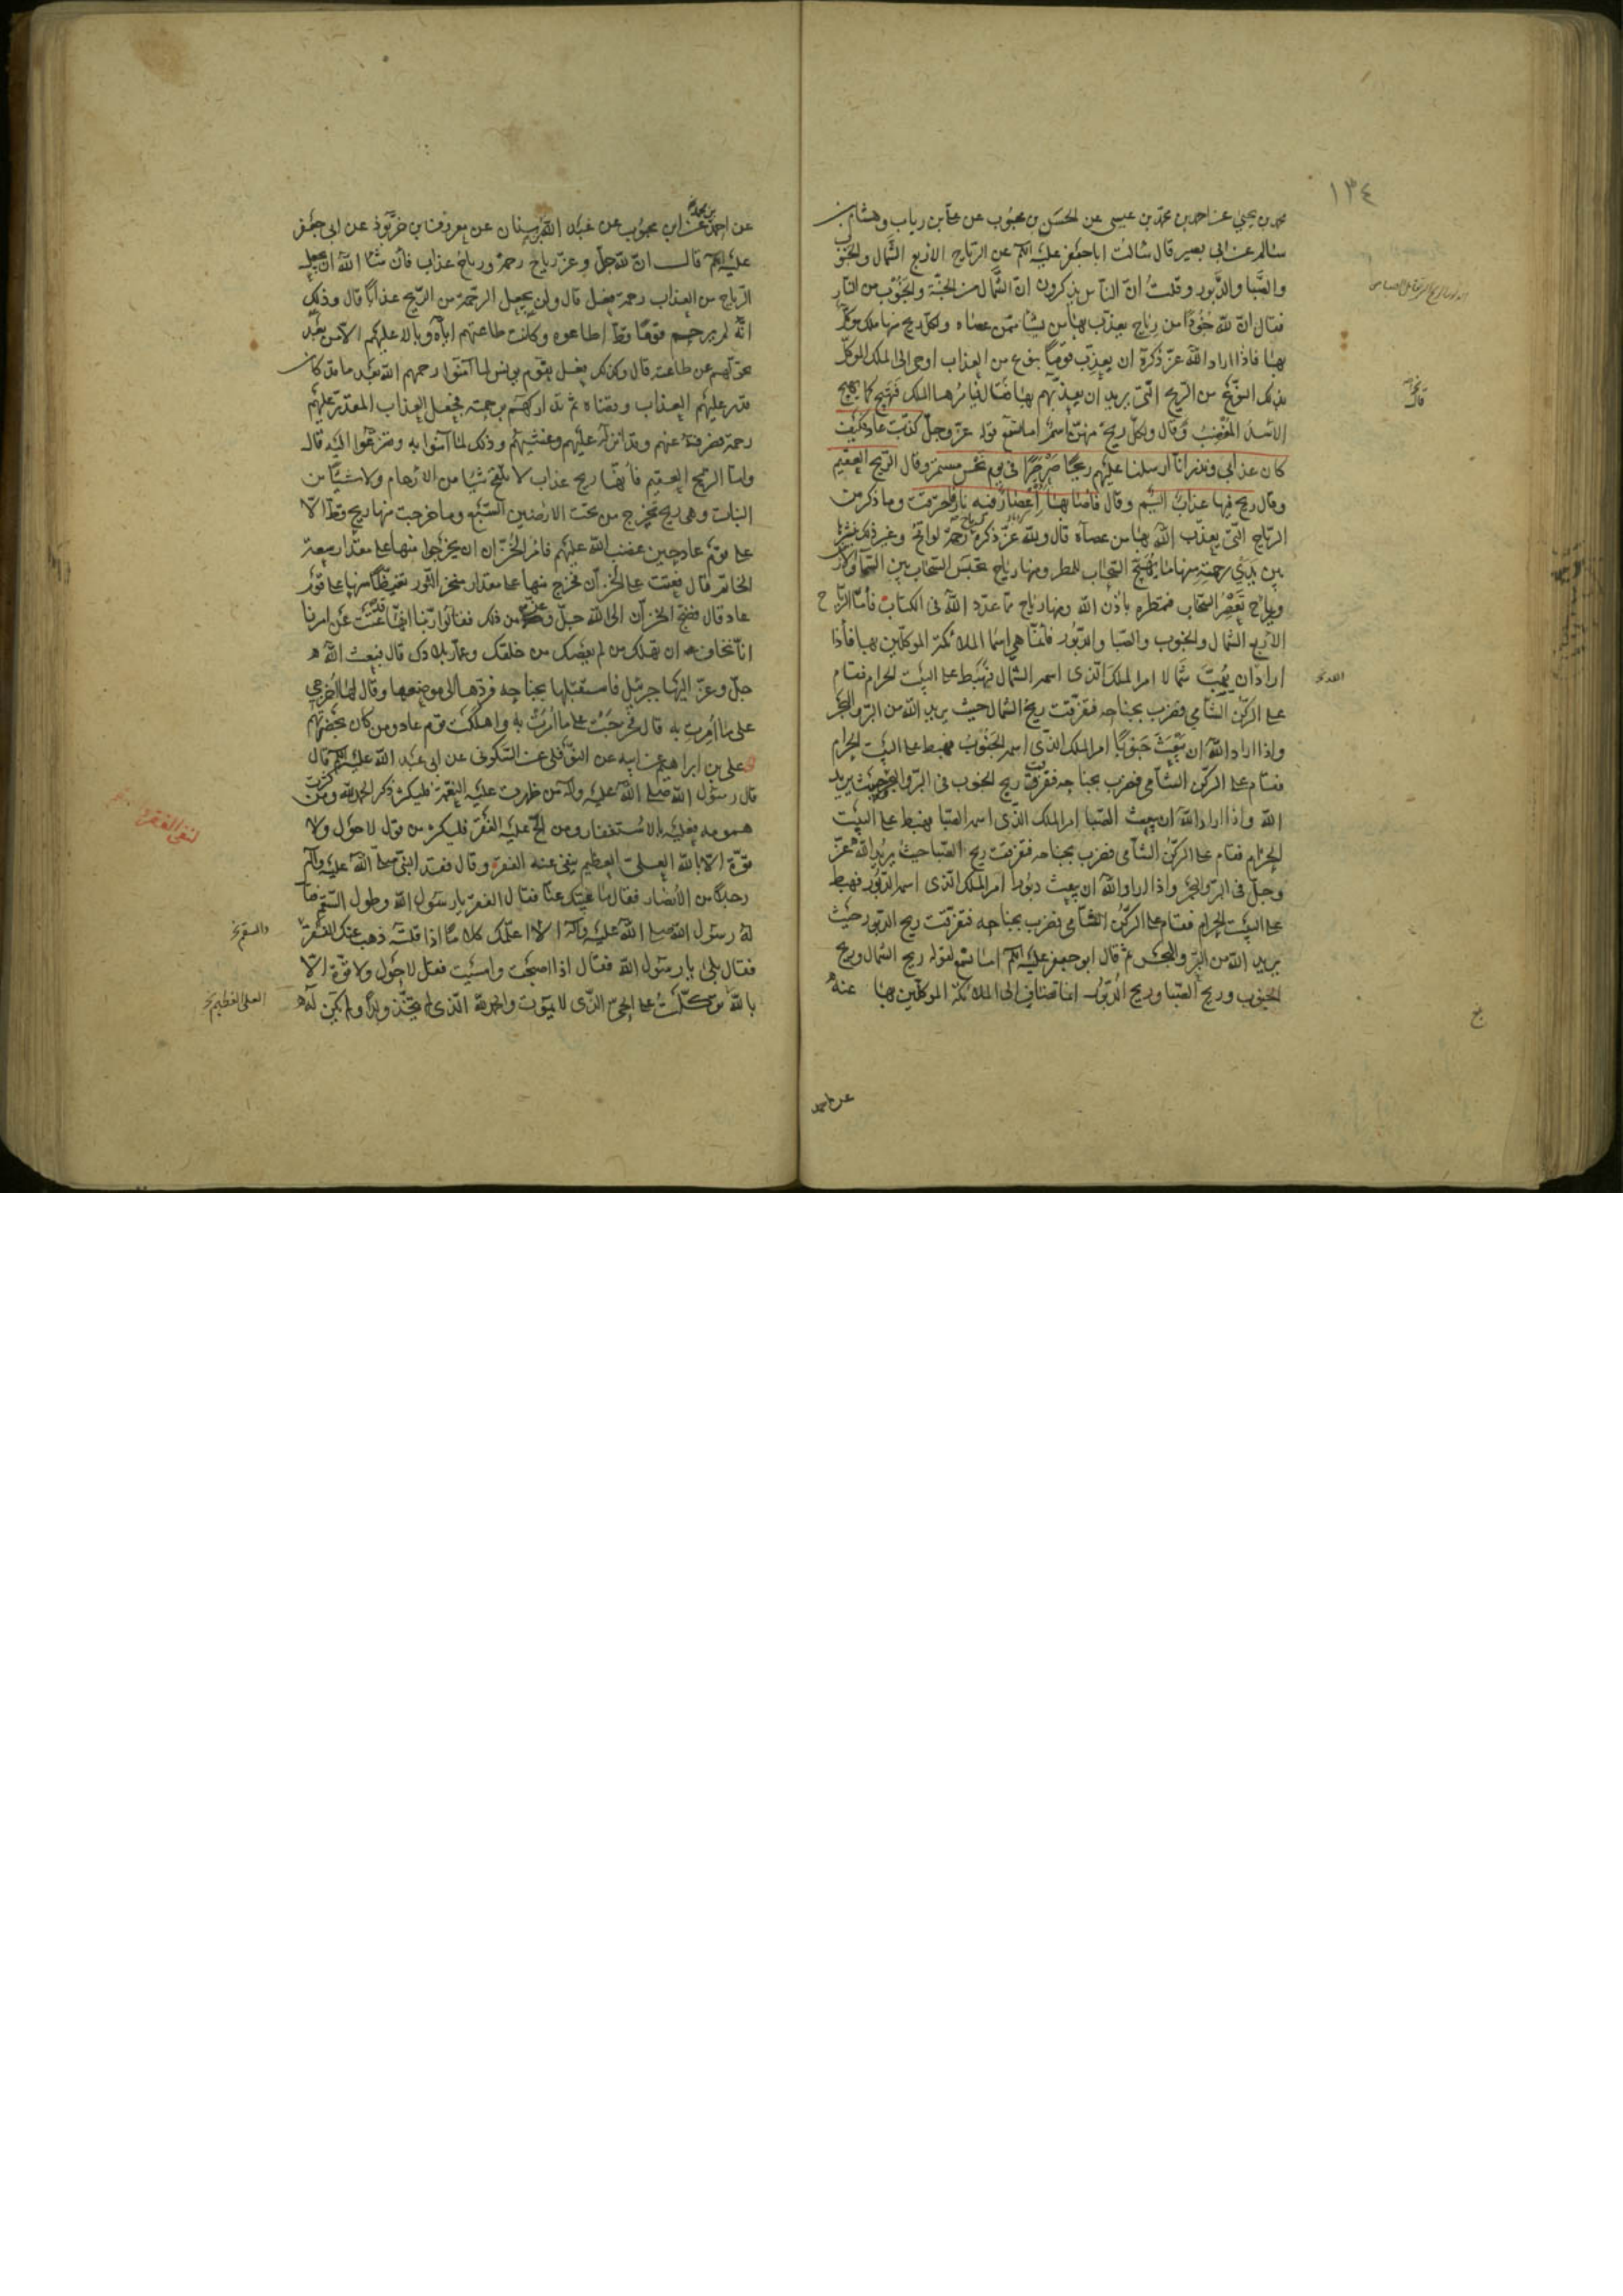 ١٣٤
محمد بن يحيى عن احمد بن محمد بن عيسى عن الحسن بن محبوب عن علي بن رياب وهشام بن
سالم عن ابى بصير قال سالت ابا جعفر عليه السلم عن الرياح الاربع الشمال والجنوب
والصبا والدبور وقلت ان الناس يذكرون ان الشمال من الجنة والجنوب من النار
فقال ان لله جنودا من رياح يعذب بها من يشا ممن عصاه ولكل ريح منها ملك موكل
بها فاذا اراد الله عز ذكره ان يعذب قوما بنوع من العذاب اوحى الى الملك الموكل
بذلك النوع من الريح التى يريد ان يعذبهم بها فقال فيامرها الملك فتهيج كما يهيج
الاسد المغضب وقال ولكل ريح منهن اسم اما تسمع قوله عز وجل كذبت عاد فكيف
كان عذابى ونذر انا ارسلنا عليهم ريحا صرصرا في يوم نحس مستمر وقال الريح العقيم
وقال ريح فيها عذاب اليم وقال فاصابها اعصار فيه نار فاحترقت وما ذكر من
الرياح التى يعذب الله بها من عصاه قال ولله عز ذكره رياح رحمة لواقح وغير ذلك ينشرها
بين يدي رحمته منها ما يهيج السحاب للمطر ومنها رياح تحبس السحاب بين السما والارض
ورياح تعصر السحاب فتمطره باذن الله ومنها رياح مما عدد الله فى الكتاب فاما الرياح
الاربع الشمال والجنوب والصبا والدبور فانما هى اسما الملائكة الموكلين بها فاذا
اراد ان يهب شمالا امر الملك الذى اسمه الشمال فيهبط على البيت الحرام فقام
على الركن الشامي فضرب بجناحه فتفرقت ريح الشمال حيث يريد الله من البر والبحر
واذا اراد الله ان يبعث جنوبا امر الملك الذى اسمه الجنوب فهبط على البيت الحرام
فقام على الركن الشامى فضرب بجناحه فتفرقت ريح الجنوب فى البر والبحر حيث يريد
الله واذا اراد الله ان يبعث الصبا امر الملك الذى اسمه الصبا فهبط على البيت
الحرام فقام على الركن الشامى فضرب بجناحه فتفرقت ريح الصبا حيث يريد الله عز
وجل فى البر والبحر واذا اراد الله ان يبعث دبورا امر الملك الذى اسمه الدبور فهبط
على البيت الحرام فقام على الركن الشامى فضرب بجناحه فتفرقت ريح الدبور حيث
يريد الله من البر والبحر ثم قال ابو جعفر عليه السلم اما تسمع لقوله ريح الشمال وريح
الجنوب وريح الصبا وريح الدبور انما تضاف الى الملائكة الموكلين بها عنه
عن احمد
عن احمد بن محمد عن ابن محبوب عن عبد الله بن سنان عن معروف بن خربوذ عن ابى جعفر
عليه السلم قال ان لله جل وعز رياح رحمة ورياح عذاب فان شا الله ان يجعل
الرياح من العذاب رحمة فعل قال ولن يجعل الرحمة من الريح عذابا قال وذلك
انه لم يرحم قوما قط اطاعوه وكانت طاعتهم اياه وبالا عليهم الا من بعد
تحولهم عن طاعته قال وكذلك فعل بقوم يونس لما آمنوا رحمهم الله بعد ما قد كان
قدر عليهم العذاب وقضاه ثم تداركهم برحمته فجعل العذاب المقدر عليهم
رحمة فصرفه عنهم وقد انزله عليهم وغشيهم وذلك لما آمنوا به وتضرعوا اليه قال
واما الريح العقيم فانها ريح عذاب لا تلقح شيا من الارحام ولا شيئا من
النبات وهى ريح تخرج من تحت الارضين السبع وما خرجت منها ريح قط الا
على قوم عاد حين غضب الله عليهم فامر الخزان ان يخرجوا منها على مقدار سعة
الخاتم قال فعتت على الخزان فخرج منها على مقدار منخر الثور تغيظا منها على قوم
عاد قال فضج الخزان الى الله جل وعز من ذلك فقالوا ربنا انها قد عتت عن امرنا
انا نخاف ان تهلك من لم يعصك من خلقك وعمار بلادك قال فبعث الله
جل وعز اليها جبرئيل فاستقبلها بجناحه فردها الى موضعها وقال لها اخرجي
على ما امرت به قال فخرجت على ما امرت به واهلكت قوم عاد ومن كان بحضرتهم
على بن ابراهيم عن ابيه عن النوفلى عن السكونى عن ابى عبد الله عليه السلم قال
قال رسول الله صلى الله عليه وآله من ظهرت عليه النعمة فليكثر ذكر الحمد لله ومن كثرت
همومه فعليه بالاستغفار ومن الح عليه الفقر فليكثر من قول لا حول ولا
قوة الا بالله العلى العظيم ينفى عنه الفقر وقال فقد النبى صلى الله عليه وآله
رجلا من الانصار فقال ما غيبك عنا فقال الفقر يا رسول الله وطول السقم فقال
له رسول الله صلى الله عليه وآله الا اعلمك كلاما اذا قلته ذهب عنك الفقر
فقال بلى يا رسول الله فقال اذا اصبحت وامسيت فقل لا حول ولا قوة الا
بالله توكلت على الحى الذى لا يموت والحمد لله الذى لم يتخذ ولدا ولم يكن له
لنفى الفقر
والسقم خ
العلى العظيم خ